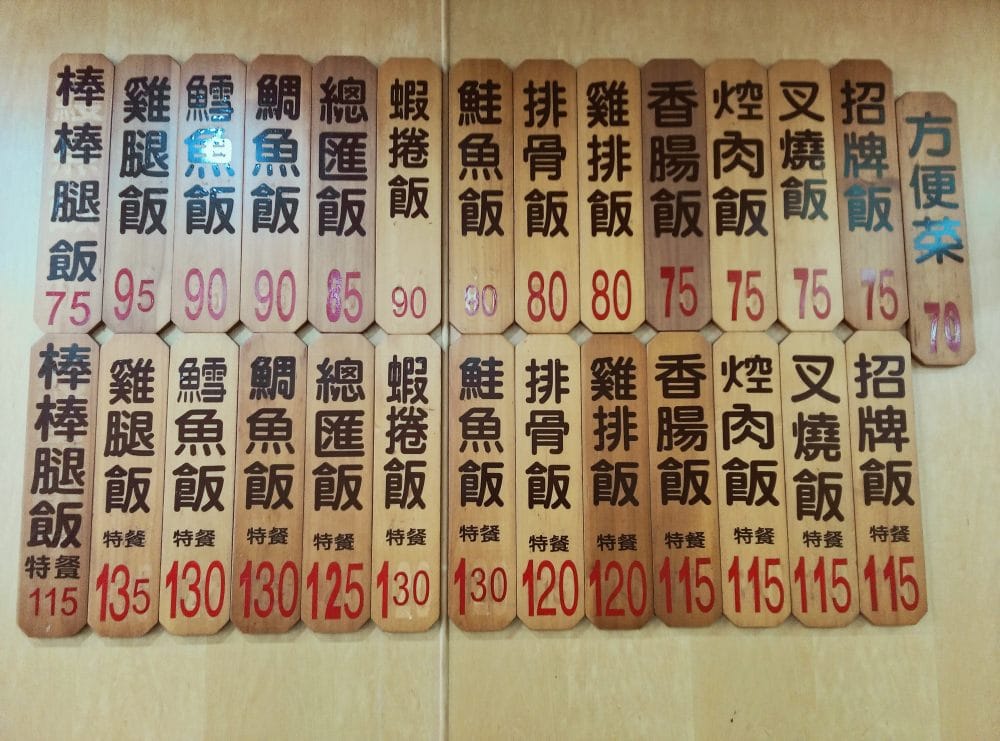 方便菜
70
招牌飯
75
叉燒飯
75
焢肉飯
75
香腸飯
75
雞排飯
80
排骨飯
80
鮭魚飯
蝦捲飯
90
總匯飯
鯛魚飯
90
鱈魚飯
90
雞腿飯
95
棒棒腿飯
75
招牌飯
特餐
115
叉燒飯
特餐
115
焢肉飯
特餐
115
香腸飯
特餐
115
雞排飯
特餐
120
排骨飯
特餐
120
鮭魚飯
特餐
130
蝦捲飯
特餐
130
總匯飯
特餐
125
鯛魚飯
特餐
130
鱈魚飯
特餐
130
雞腿飯
特餐
135
棒棒腿飯
特餐
115